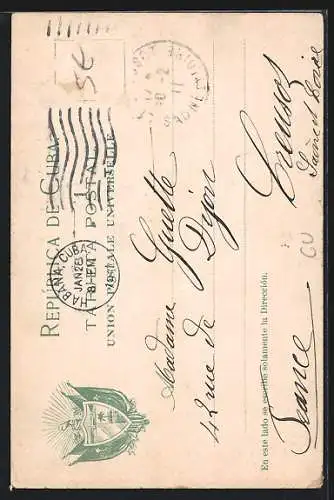 REPÚBLICA DE CUBA
TARJETA POSTAL
UNION POSTALE UNIVERSELLE
HABANA, CUBA
JAN 28
8 - PM
1911
Madame Guette
42 rue de Dijon
Creusot
Saône et Loire
France
En este lado se escribe solamente la Dirección.
5c